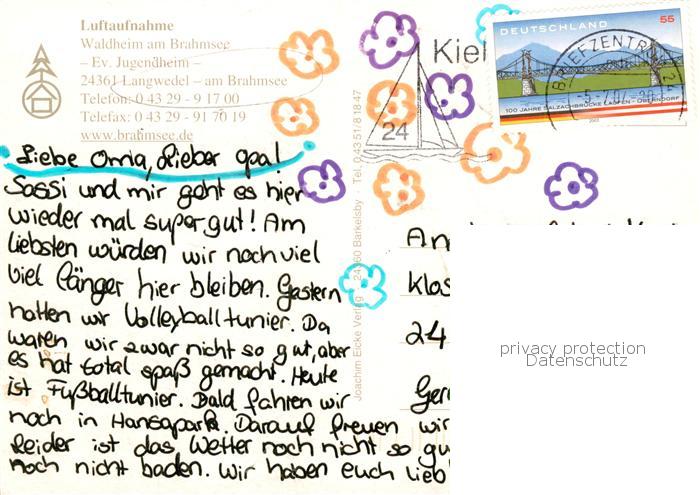 Luftaufnahme
Waldheim am Brahmsee
– Ev. Jugendheim –
24361 Langwedel – am Brahmsee
Telefon: 0 43 29 - 9 17 00
Telefax: 0 43 29 - 91 70 19
www.brahmsee.de
Kiel
24
DEUTSCHLAND
55
BRIEFZENTRUM 24
100 JAHRE SALZACHBRÜCKE LAUFEN - OBERNDORF
Joachim Eicke Verlag · 24360 Barkelsby · Tel. 0 43 51/8 18 47
Liebe Oma, Lieber Opa!
Sassi und mir geht es hier
wieder mal super gut! Am
liebsten würden wir noch viel
viel länger hier bleiben. Gestern
hatten wir Volleyballtunier. Da
waren wir zwar nicht so gut, aber
es hat total spaß gemacht. Heute
ist Fußballtunier. Bald fahren wir
noch in Hansapark. Darauf freuen wir
Leider ist das Wetter noch nicht so gu
noch nicht baden. Wir haben euch lieb
An
Klos
24
Ger
privacy protection
Datenschutz